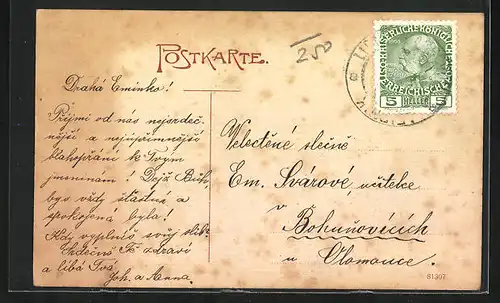 POSTKARTE.
250
KAISERLICHE KÖNIGL
ÖSTERREICHISCHE
5 HELLER 5
Drahá Eminko!
Přijmi od nás nejsrdeč-
nější a nejupřímnější
blahopřání k Tvým
jmeninám! Dejž Bůh,
bys vždy šťastná a
spokojená byla!
Kdy vyplníš svůj slib?
Srdečně Tě zdraví
a líbá Tvá
Joh. a Anna.
Velectěné slečně
Em. Svárové, učitelce
v
Bohuňovicích
u Olomouce.
81307